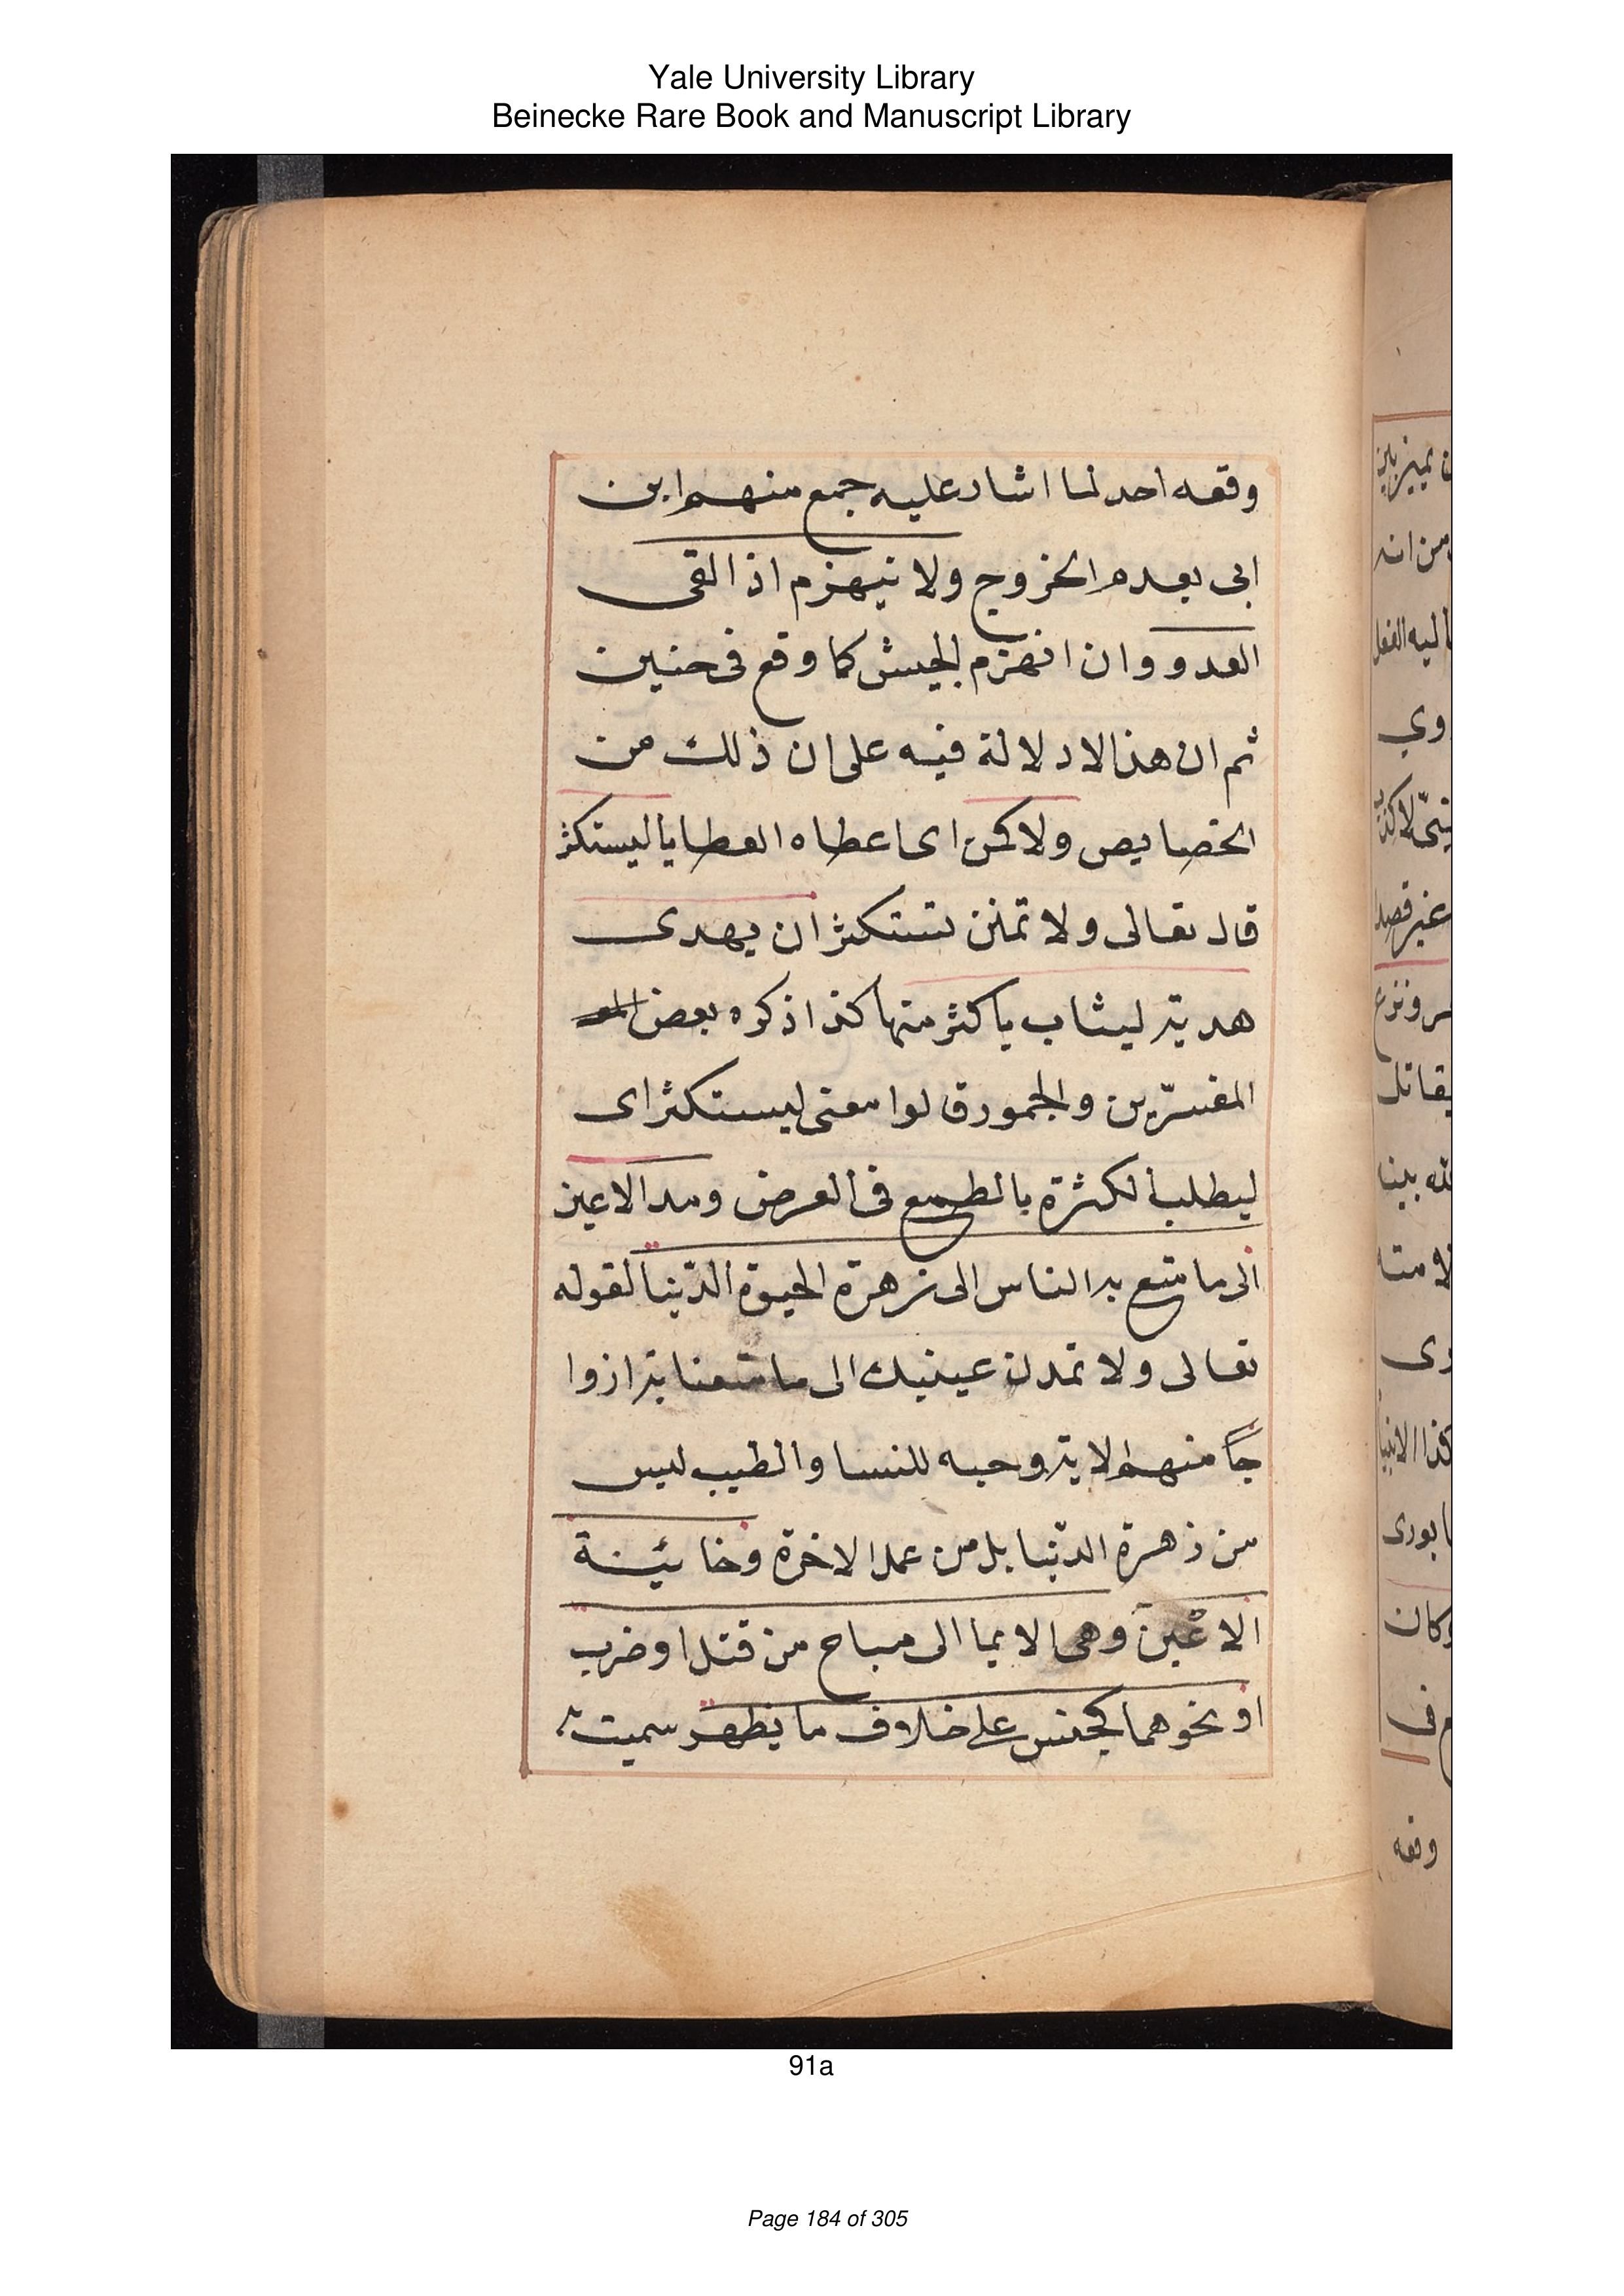 Yale University Library
Beinecke Rare Book and Manuscript Library
وقعه احد لما اشار عليه جمع منهم ابن
ابى بعدم الخروج ولا ينهزم اذا لقى
العدو وان انهزم الجيش كما وقع فى حنين
ثم ان هذا لا دلالة فيه على ان ذلك من
الخصايص ولا كن اى اعطاه العطايا ليستكثر
قال تعالى ولا تمنن تستكثر ان يهدى
هديته ليثاب باكثر منها كذا ذكره بعض
المفسّرين والجمهور قالوا معنى ليستكثر اى
ليطلب الكثرة بالطمع فى العرض ومد الاعين
الى ما متع به الناس الى زهرة الحيوة الدّنيا لقوله
تعالى ولا تمدن عينيك الى ما متعنا به ازوا
جاً منهم لا يتر وحبه للنسا والطيب ليس
من زهرة الدّنيا بل من عمل الاخرة وخائينة
الاعْين وهى الايما الى مباح من قتل او ضرب
او نحوهما كجنس على خلاف ما يظهر سميت
91a
Page 184 of 305
وى
وكان
وقعه